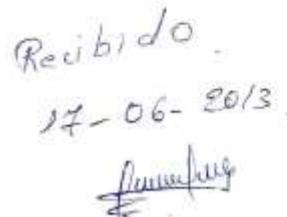 Recibido.
17-06-2013